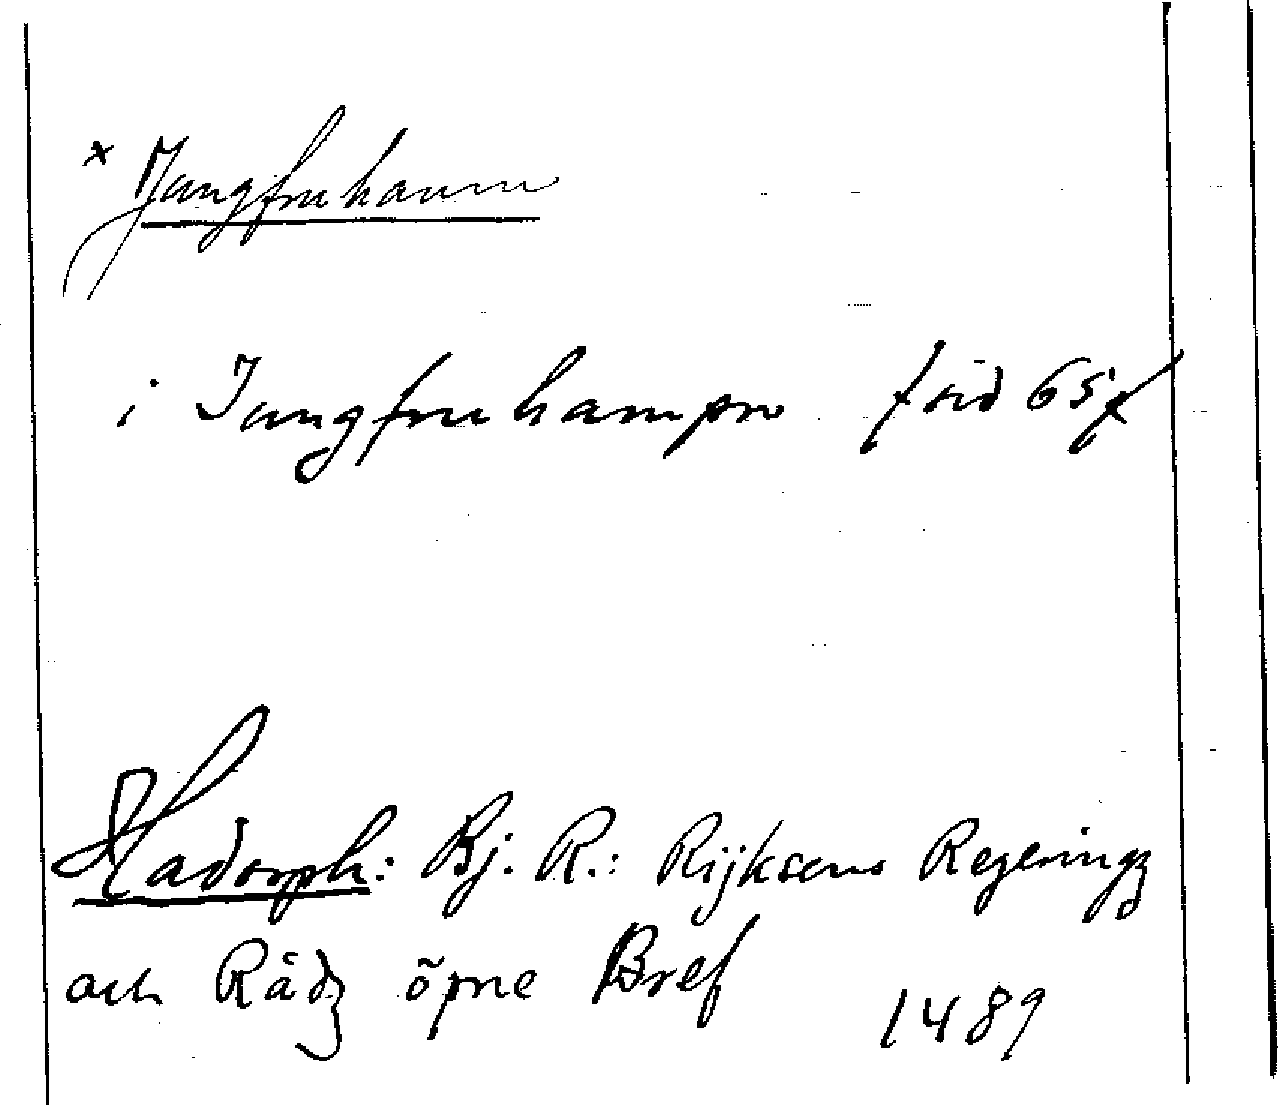 x Jungfruhamn
i Jungfruhampn /sid 65/
Hadorph: Bj. R.: Rijksens Regeringz
och Rådz öpne Bref 1489